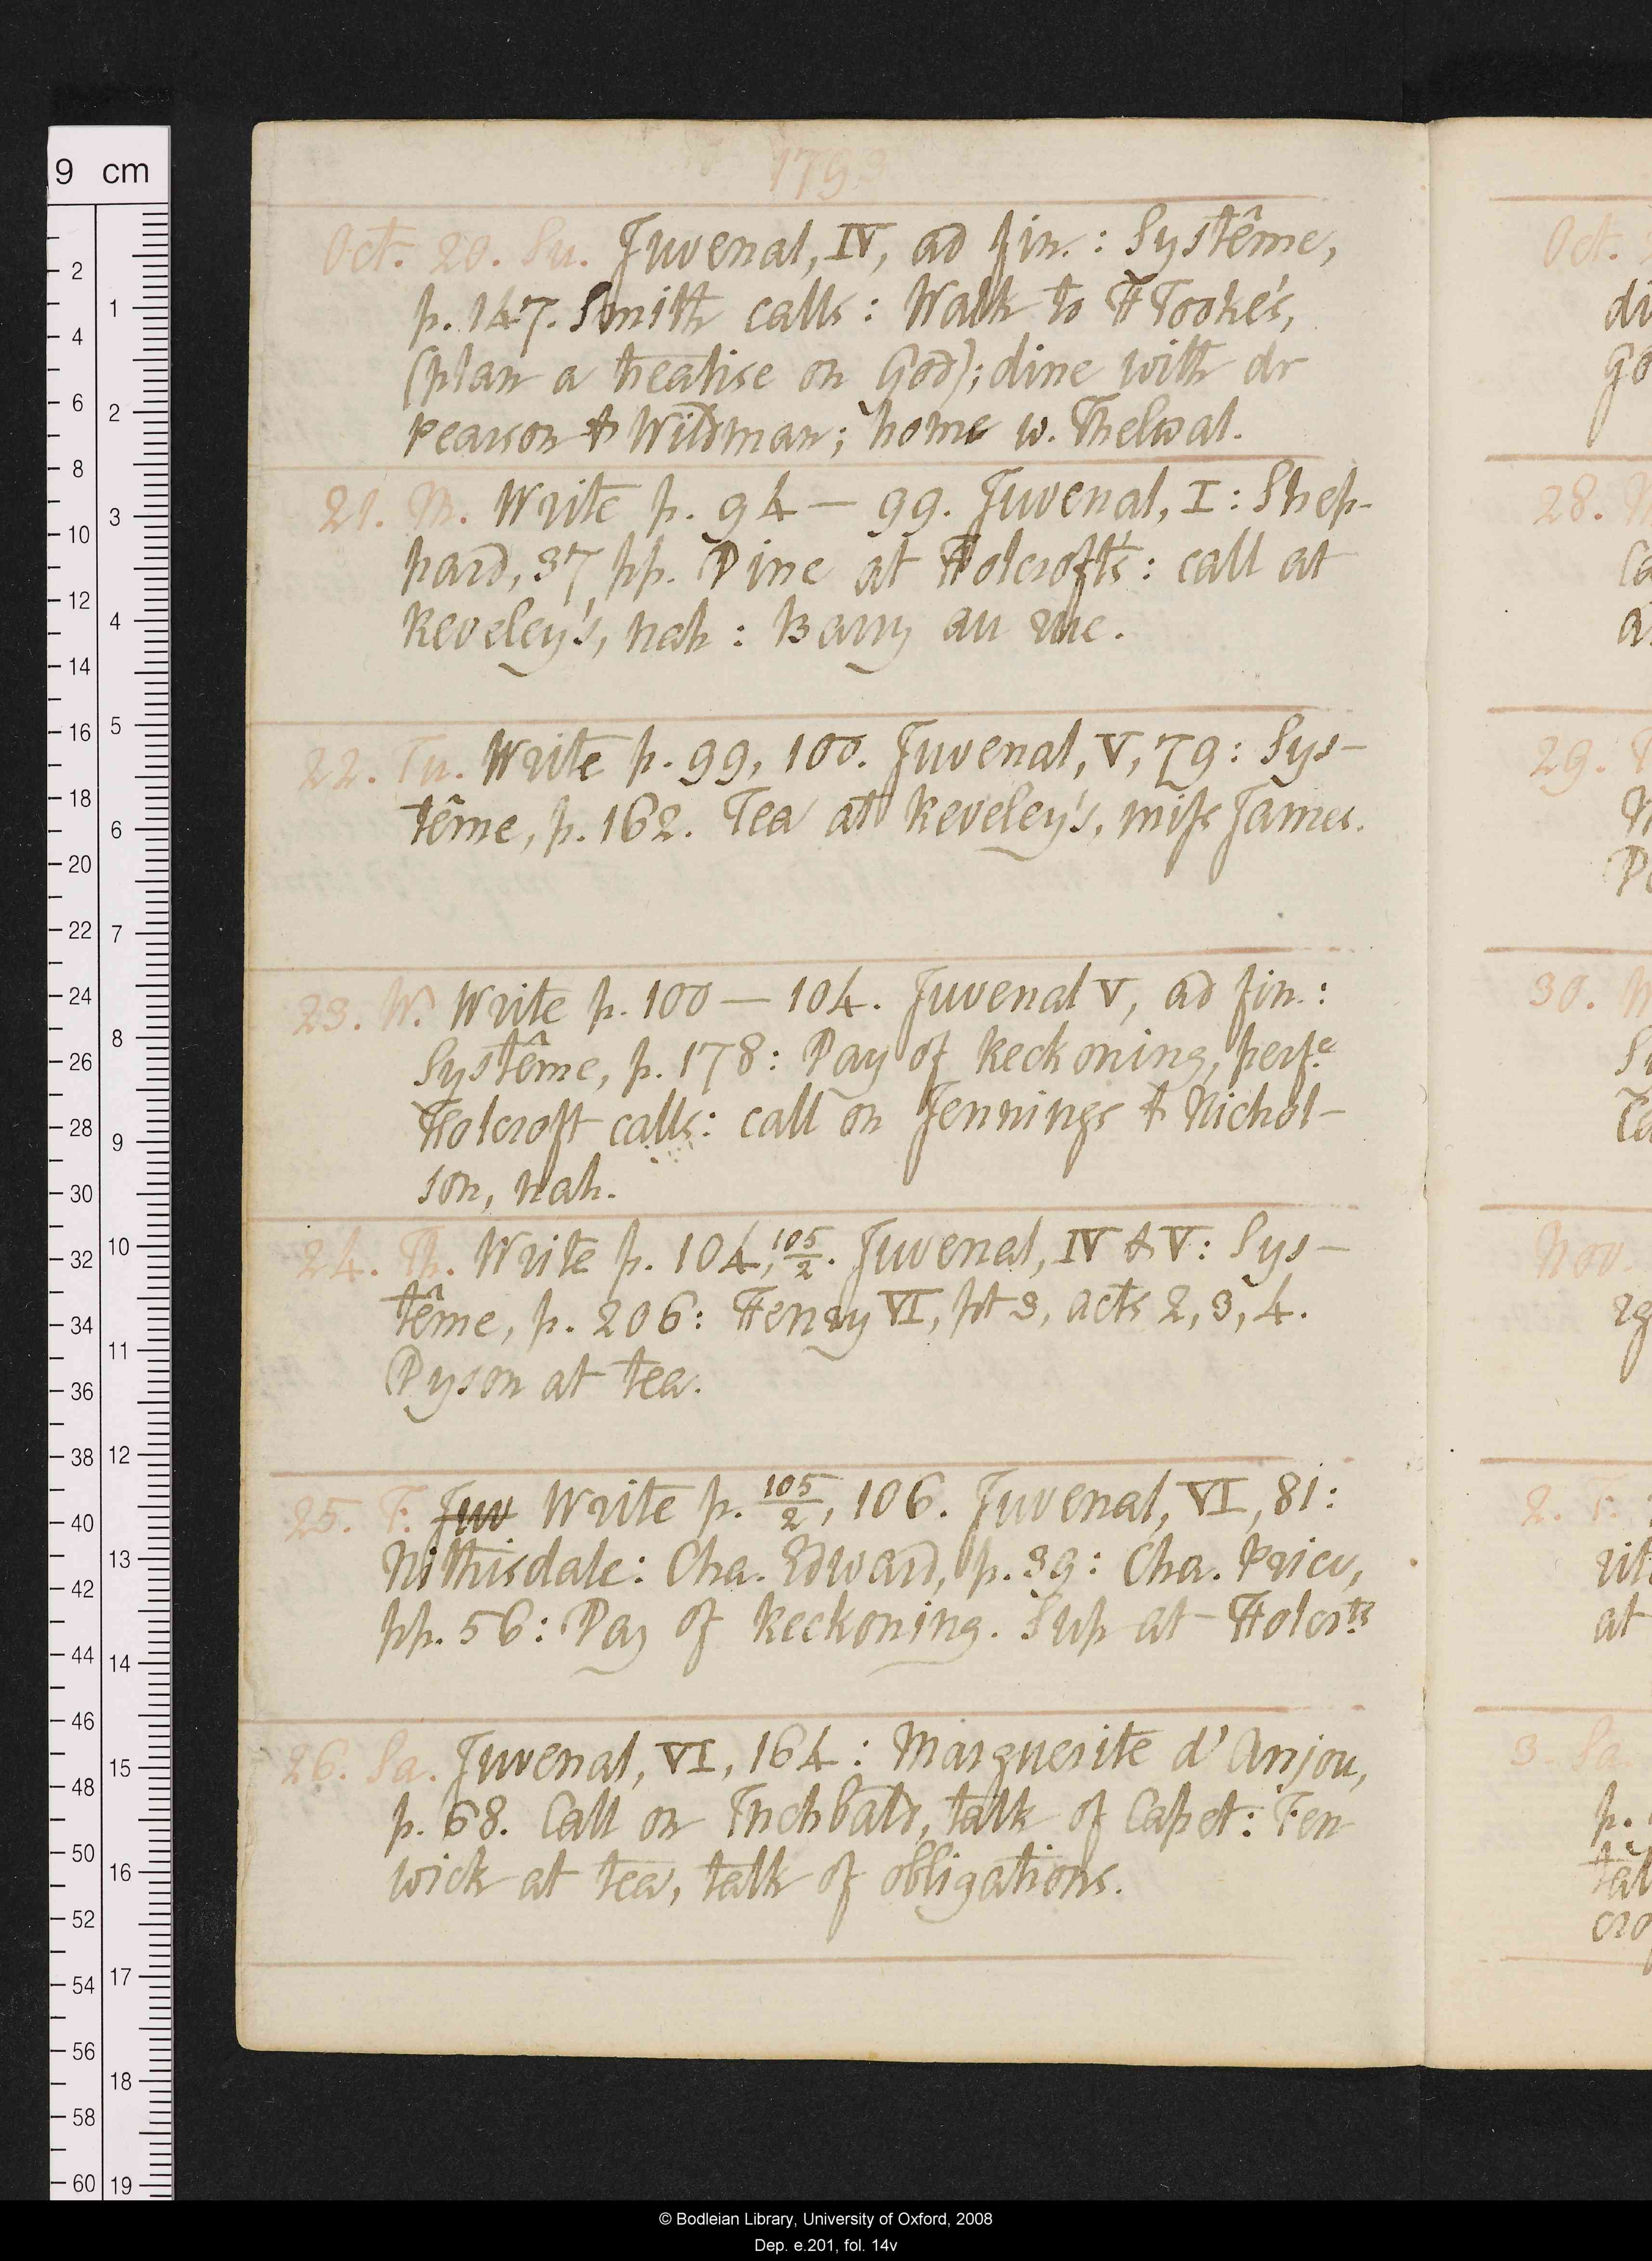 1793
Oct. 20. Su. Juvenal, IV, ad fin.: Systême,
p. 147. Smith calls: Walk to H Tooke's,
(plan a treatise on God); dine with dr
Pearson & Wildman; home w. Thelwal.
21. M. Write p. 94 — 99. Juvenal, I: Shep-
pard, 37 pp. Dine at Holcroft's: call at
Reveley's, nah: Barry au rue.
22. Tu. Write p. 99, 100. Juvenal, V, 79: Sys-
tême, p. 162. Tea at Reveley's, miss James.
23. W. Write p. 100 — 104. Juvenal V, ad fin.:
Systême, p. 178: Day of Reckoning, perf.ce
Holcroft calls: call on Jennings & Nichol-
son, nah.
24. Th. Write p. 104, 105/2. Juvenal, IV & V: Sys-
tême, p. 206: Henry VI, pt 3, acts 2, 3, 4.
Dyson at tea.
25. F. Juv Write p. 105/2, 106. Juvenal, VI, 81:
Nithisdale: Cha. Edward, p. 39: Cha. Price,
pp. 56: Day of Reckoning. Sup at Holcr.ts
26. Sa. Juvenal, VI, 164: Marguerite d'Anjou,
p. 68. Call on Inchbald, talk of Capet: Fen
wick at tea, talk of obligations.
Oct.
di
go
28. M
Ca
29. T
30. W
Nov.
2. F.
at
3. Sa.
p.
tal
cro
9 cm
2
4
6
8
10
12
14
16
18
20
22
24
26
28
30
32
34
36
38
40
42
44
46
48
50
52
54
56
58
60
1
2
3
4
5
6
7
8
9
10
11
12
13
14
15
16
17
18
19
© Bodleian Library, University of Oxford, 2008
Dep. e.201, fol. 14v